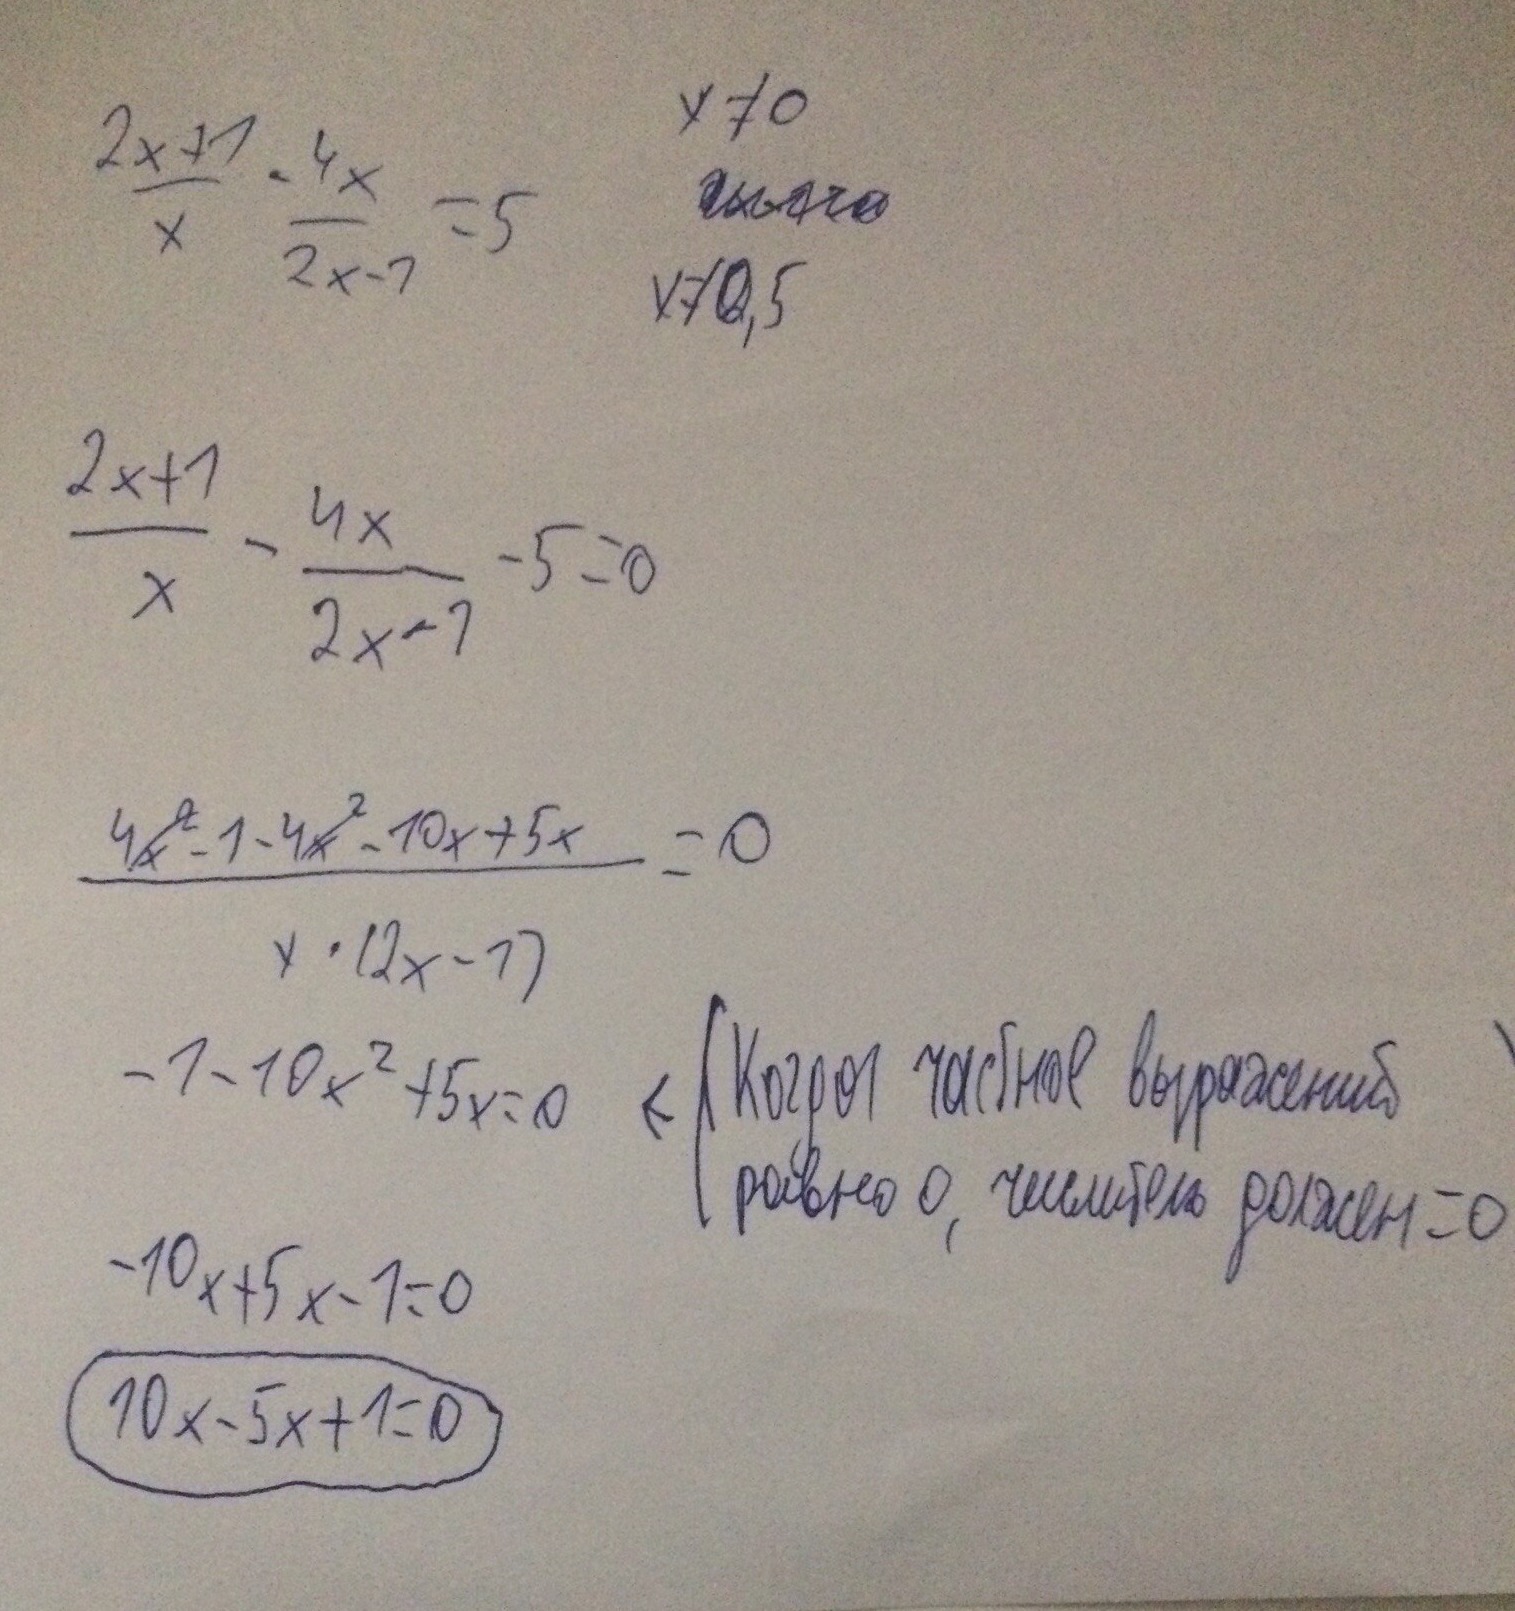 2x+1 / x - 4x / 2x-1 = 5
x≠0
x≠0,5
2x+1 / x - 4x / 2x-1 - 5 = 0
4x² - 1 - 4x² - 10x + 5x / x · (2x-1) = 0
-1 - 10x² + 5x = 0 ← (Когда частное выражений
равно 0, числитель должен = 0
-10x + 5x - 1 = 0
10x - 5x + 1 = 0